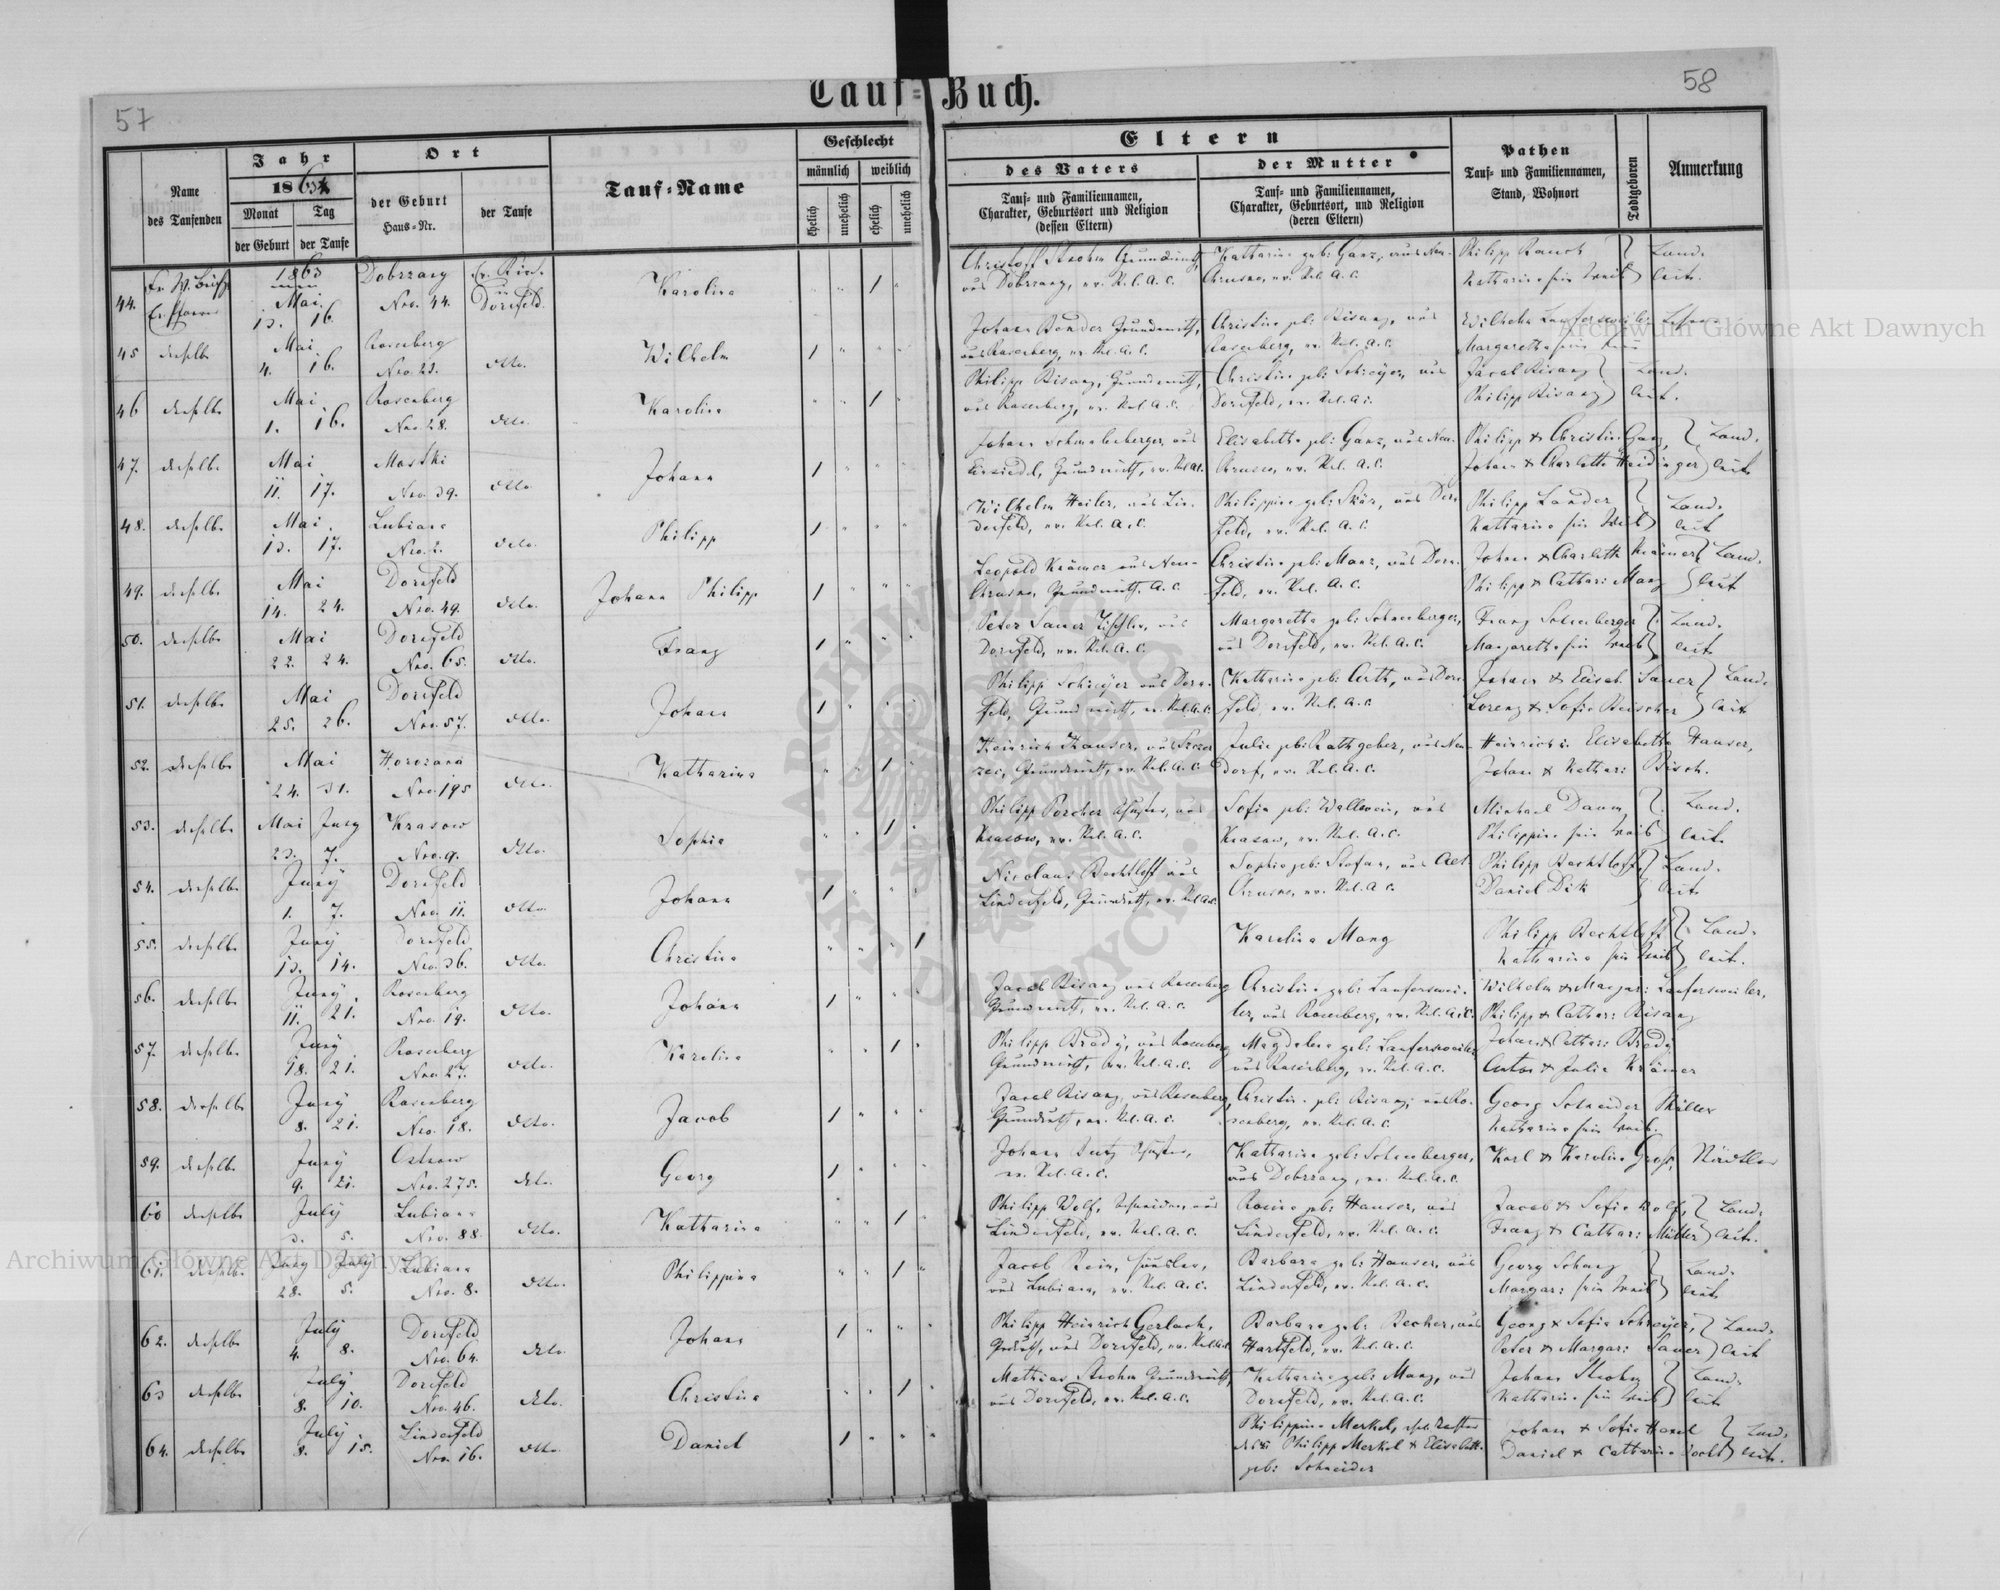 57
58
Tauf-Buch.
Name des Taufenden
Jahr
1863
Monat
Tag
der Geburt
der Taufe
Ort
der Geburt
Haus-Nr.
der Taufe
Tauf-Name
Geschlecht
männlich
weiblich
ehelich
unehelich
ehelich
unehelich
Eltern
des Vaters
Tauf- und Familiennamen,
Charakter, Geburtsort und Religion
(dessen Eltern)
der Mutter
Tauf- und Familiennamen,
Charakter, Geburtsort, und Religion
(deren Eltern)
Pathen
Tauf- und Familiennamen,
Stand, Wohnort
Todtgeboren
Anmerkung
44. 1863 Mai 13. 16. Dobrzany Nro. 44. Dornfeld Karolina 1
aus Dobrzany, ev. Rel. A. C.
Katharina geb: Ganz, aus Neu-
Chrusno, ev. Rel. A. C.
Philipp Rauch
Katharina sein Weib
Land-
leut.
45 derselbe Mai 4. 16. Rosenberg Nro. 23. detto. Wilhelm 1
Johann Bender Grundwirth,
aus Rosenberg, ev. Rel. A. C.
Christina geb: Bisanz, aus
Rosenberg, ev. Rel. A. C.
Wilhelm Laufersweiler
Margaretha sein
46 derselbe Mai 1. 16. Rosenberg Nro. 28. detto. Karolina 1
Philipp Bisanz, Grundwirth,
aus Rosenberg, ev. Rel. A. C.
Christina geb: Schreyer, aus
Dornfeld, ev. Rel. A. C.
Jacob Bisanz
Philipp Bisanz
Land-
leut.
47. derselbe Mai 11. 17. Mostki Nro. 39. detto Johann 1
Johann aus
Einsiedel, Grundwirth, ev. Rel. A. C.
Elisabetha geb: Ganz, aus Neu-
Chrusno, ev. Rel. A. C.
Philipp & Christina Ganz,
Johann & Charlotte Heidinger
Land-
leut
48. derselbe Mai. 13. 17. Lubiana Nro. 2. detto. Philipp 1
Wilhelm Heiler, aus Lin-
denfeld, ev. Rel. A. C.
Philippina geb: aus Dorn-
feld, ev. Rel. A. C.
Philipp Lander
Katharina sein Weib
Land-
leut
49. derselbe Mai 14. 24. Dornfeld Nro. 49. detto. Johann Philipp 1
Leopold Krämer aus Neu-
Chrusno, Grundwirth, A. C.
Christina geb: Manz, aus Dorn-
feld, ev. Rel. A. C.
Johann & Charloth Krämer
Philipp & Cathari: Manz
Land-
leut
50. derselbe Mai 22. 24. Dornfeld Nro. 65. detto. Franz 1
Peter Sauer Tischler, aus
Dornfeld, ev. Rel. A. C.
Margaretha geb: Schneeberger,
aus Dornfeld, ev. Rel. A. C.
Franz Schneeberger
Margaretha sein Weib
Land-
leut
51. derselbe Mai 25. 26. Dornfeld Nro. 57. detto. Johann 1
Philipp Schreyer aus Dorn-
feld, Grundwirth, ev. Rel. A. C.
Katharina geb: aus Dorn-
feld, ev. Rel. A. C.
Johann & Elisab. Sauer
Lorenz & Sofia
Land-
leut
52. derselbe Mai 24. 31. Horozana Nro. 195 detto. Katharina 1
Heinrich Hauser, aus Szczer-
zec, Grundwirth, ev. Rel. A. C.
Julia geb: Rathgeber, aus Neu-
Dorf, ev. Rel. A. C.
Heinrich & Elisabetha Hauser,
Johann & Kathari: Bisch.
53. derselbe Mai 23. Juny 7. Krasow Nro. 9. detto. Sophia 1
Philipp Porcher Schuster, aus
Krasow, ev. Rel. A. C.
Sofia geb: Wallwein, aus
Krasow, ev. Rel. A. C.
Michael Daum
Philippina sein Weib
Land-
leut
54. derselbe Juny 1. 7. Dornfeld Nro. 11. detto. Johann 1
Nicolaus Bechtloff aus
Lindenfeld, Grundwirth, ev. Rel. A. C.
Sophia geb: Stefan, aus Alt
Chrusno, ev. Rel. A. C.
Philipp Bechtloff
Daniel Dik
Land-
leut
55. derselbe Juny 13. 14. Dornfeld Nro. 36. detto. Christina 1
Karolina Manz
Philipp Bechtloff
Katharina sein Weib
Land-
leut.
56. derselbe Juny. 11. 21. Rosenberg Nro. 19. detto. Johann 1
Jacob Bisanz aus Rosenberg
Grundwirth, ev. Rel. A. C.
Christina geb: Lauferswei-
ler, aus Rosenberg, ev. Rel. A. C.
Wilhelm & Margar: Laufersweiler,
Philipp & Cathar: Bisanz
57. derselbe Juny 18. 21. Rosenberg Nro. 27. detto. Karolina 1
Philipp Brödy, aus Rosenberg
Grundwirth, ev. Rel. A. C.
Magdalena geb: Laufersweiler
aus Rosenberg, ev. Rel. A. C.
Johann & Cathari: Brödy
Anton & Julia Krämer
58. derselbe Juny 8. 21. Rosenberg Nro. 18. detto. Jacob 1
Jacob Bisanz, aus Rosenberg,
Grundwirth, ev. Rel. A. C.
Christina geb: Bisanz, aus Ro-
senberg, ev. Rel. A. C.
Georg Schneider Müller
Katharina sein Weib.
59. derselbe Juny 9. 21. Ostrow Nro. 275. detto. Georg 1
Johann Schuster,
ev. Rel. A. C.
Katharina geb: Schneeberger,
aus Dobrzany, ev. Rel. A. C.
Karl & Karolina Groß,
60 derselbe July 3. 5. Lubiana Nro. 88. detto. Katharina 1
Philipp Wolf, Schneider, aus
Lindenfeld, ev. Rel. A. C.
Rosina geb: Hauser, aus
Lindenfeld, ev. Rel. A. C.
Jacob & Sofia Wolf,
Franz & Cathar: Müller
Land-
leut.
61. derselbe Juny 28. July 5. Lubiana Nro. 8. detto. Philippina 1
Jacob Rein,
aus Lubiana, ev. Rel. A. C.
Barbara geb: Hauser, aus
Lindenfeld, ev. Rel. A. C.
Georg Schanz
Margar: sein Weib
Land-
leut
62. derselbe July 4. 8. Dornfeld Nro. 64. detto. Johann 1
Philipp Heinrich Gerlach,
aus Dornfeld, ev. Rel. A. C.
Barbara geb: Becher, aus
Hartfeld, ev. Rel. A. C.
Georg & Sofia Schreyer,
Peter & Margar: Sauer
Land-
leut
63 derselbe July 8. 10. Dornfeld Nro. 46. detto. Christina 1
Mathias Strohm Grundwirth,
aus Dornfeld, ev. Rel. A. C.
Katharina geb: Manz, aus
Dornfeld, ev. Rel. A. C.
Johann Strohm
Katharina sein Weib
Land-
leut
64. derselbe July 8. 15. Lindenfeld Nro. 16. detto. Daniel 1
Philippina Merkel, ehel. Tochter
des Philipp Merkel & Elisabeth
geb: Schneider
Johann & Sofia
Daniel & Catharina
Land-
leut.
Archiwum Główne Akt Dawnych
Archiwum Główne Akt Dawnych
ARCHIWUM GŁÓWNE AKT DAWNYCH